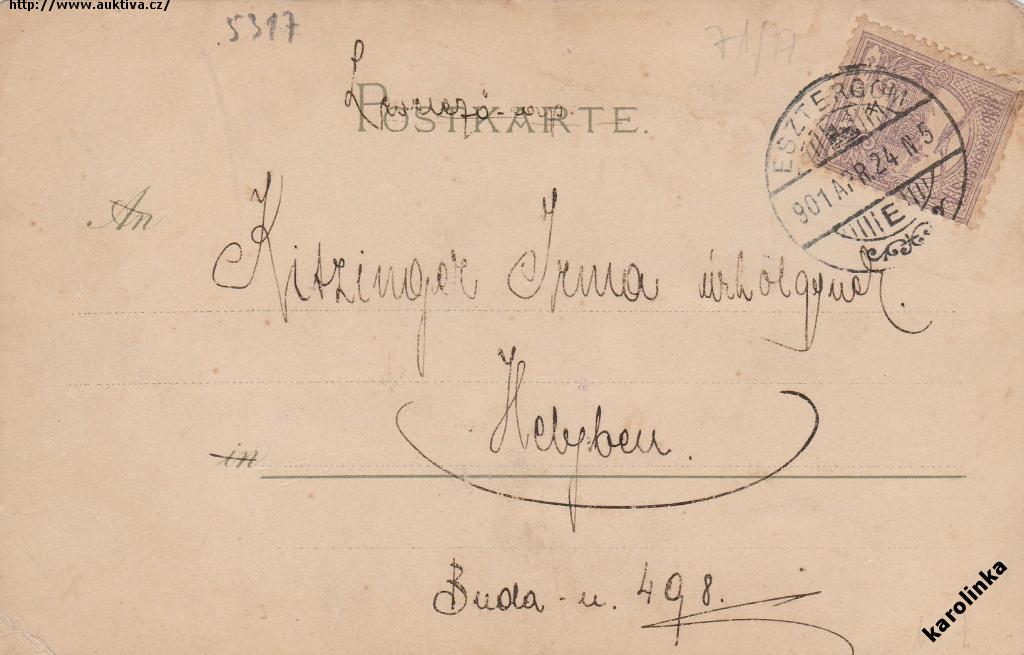 http://www.auktiva.cz/
5317
71/17
Levelező-lap
POSTKARTE.
ESZTERGOM
901 APR. 24 N. 5
E
An
Kitzinger Irma úrhölgynek.
Helyben.
in
Buda-u. 498.
karolinka